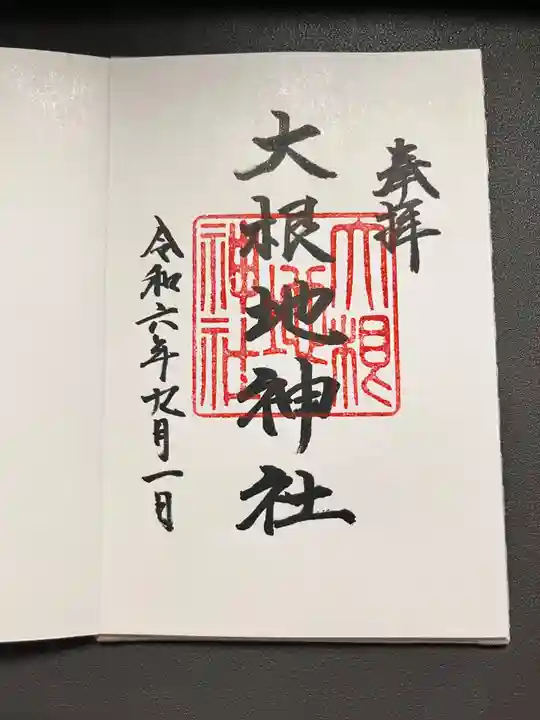 奉拝
大根地神社
大根
地
神社
令和六年九月一日